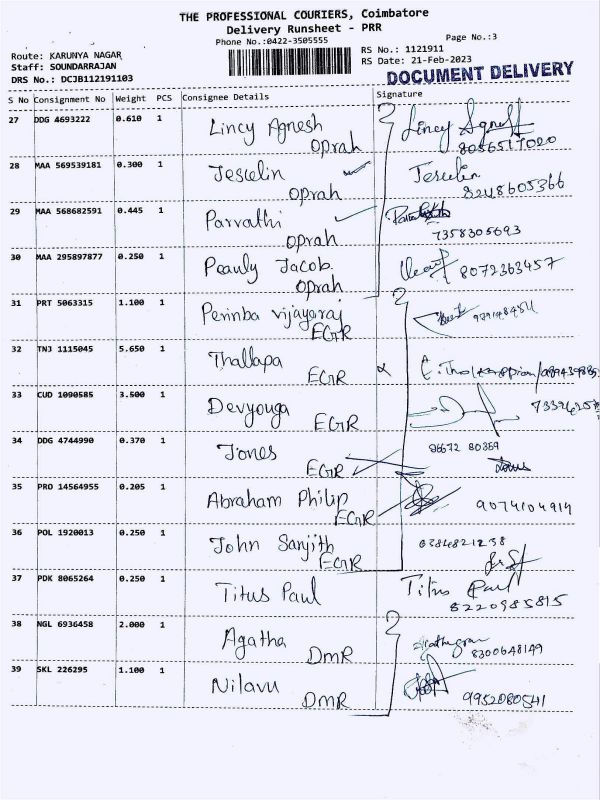 THE PROFESSIONAL COURIERS, Coimbatore
Delivery Runsheet - PRR
Phone No.:0422-3505555
Page No.:3
Route: KARUNYA NAGAR
RS No.: 1121911
Staff: SOUNDARRAJAN
RS Date: 21-Feb-2023
DRS No.: DCJB112191103
DOCUMENT DELIVERY
S No Consignment No Weight PCS Consignee Details Signature
27 DDG 4693222 0.610 1 Lincy Agnesh Lincy
Oprah 8056517020
28 MAA 569539181 0.300 1 Jescelin Jescelin
Oprah 8248605366
29 MAA 568682591 0.445 1 Parvathi
Oprah 7358305693
30 MAA 295897877 0.250 1 Pauly Jacob 8072363457
Oprah
31 PRT 5063315 1.100 1 Perinba vijayaraj
EGR
32 TNJ 1115045 5.650 1 Thallapa
EGR
33 CUD 1090585 3.500 1 Devyouga
EGR
34 DDG 4744990 0.370 1 Jones 96672 80369
EGR
35 PRO 14564955 0.205 1 Abraham Philip 9074104914
EGR
36 POL 1920013 0.250 1 John Sanjith
EGR
37 PDK 8065264 0.250 1 Titus Paul Titus Paul
8220985815
38 NGL 6936458 2.000 1 Agatha
DMR 8300648149
39 SKL 226295 1.100 1 Nilavu
DMR 9952080541